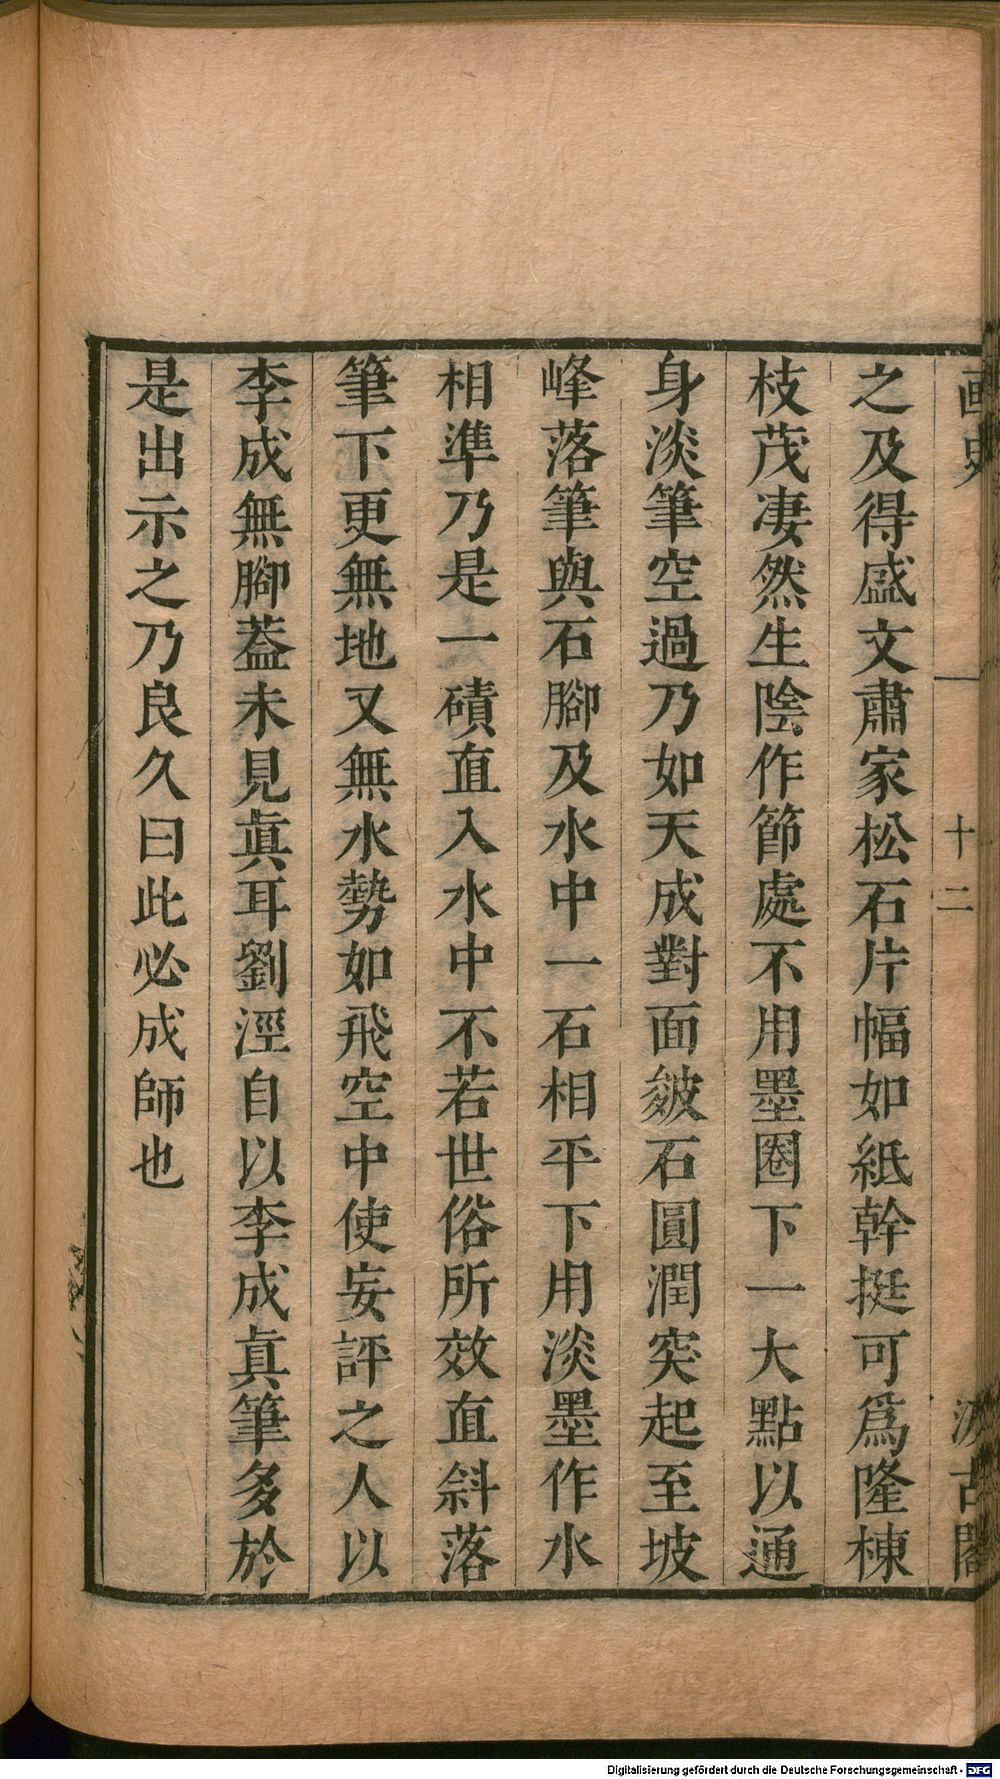 画史
十二
汲古閣
之及得盛文肅家松石片幅如紙幹挺可爲隆棟
枝茂凄然生陰作節處不用墨圈下一大點以通
身淡筆空過乃如天成對面皴石圓潤突起至坡
峰落筆與石腳及水中一石相平下用淡墨作水
相準乃是一磧直入水中不若世俗所效直斜落
筆下更無地又無水勢如飛空中使妄評之人以
李成無腳葢未見眞耳劉涇自以李成眞筆多於
是出示之乃良久曰此必成師也
Digitalisierung gefördert durch die Deutsche Forschungsgemeinschaft - DFG